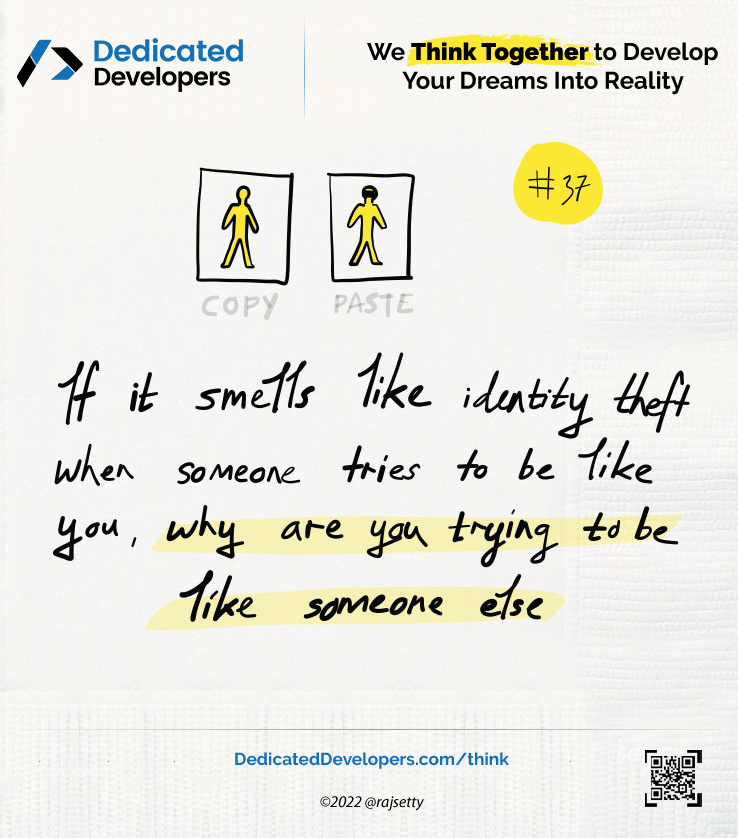 Dedicated
Developers
We Think Together to Develop
Your Dreams Into Reality
#37
COPY PASTE
If it smells like identity theft
when someone tries to be like
you, why are you trying to be
like someone else
DedicatedDevelopers.com/think
©2022 @rajsetty